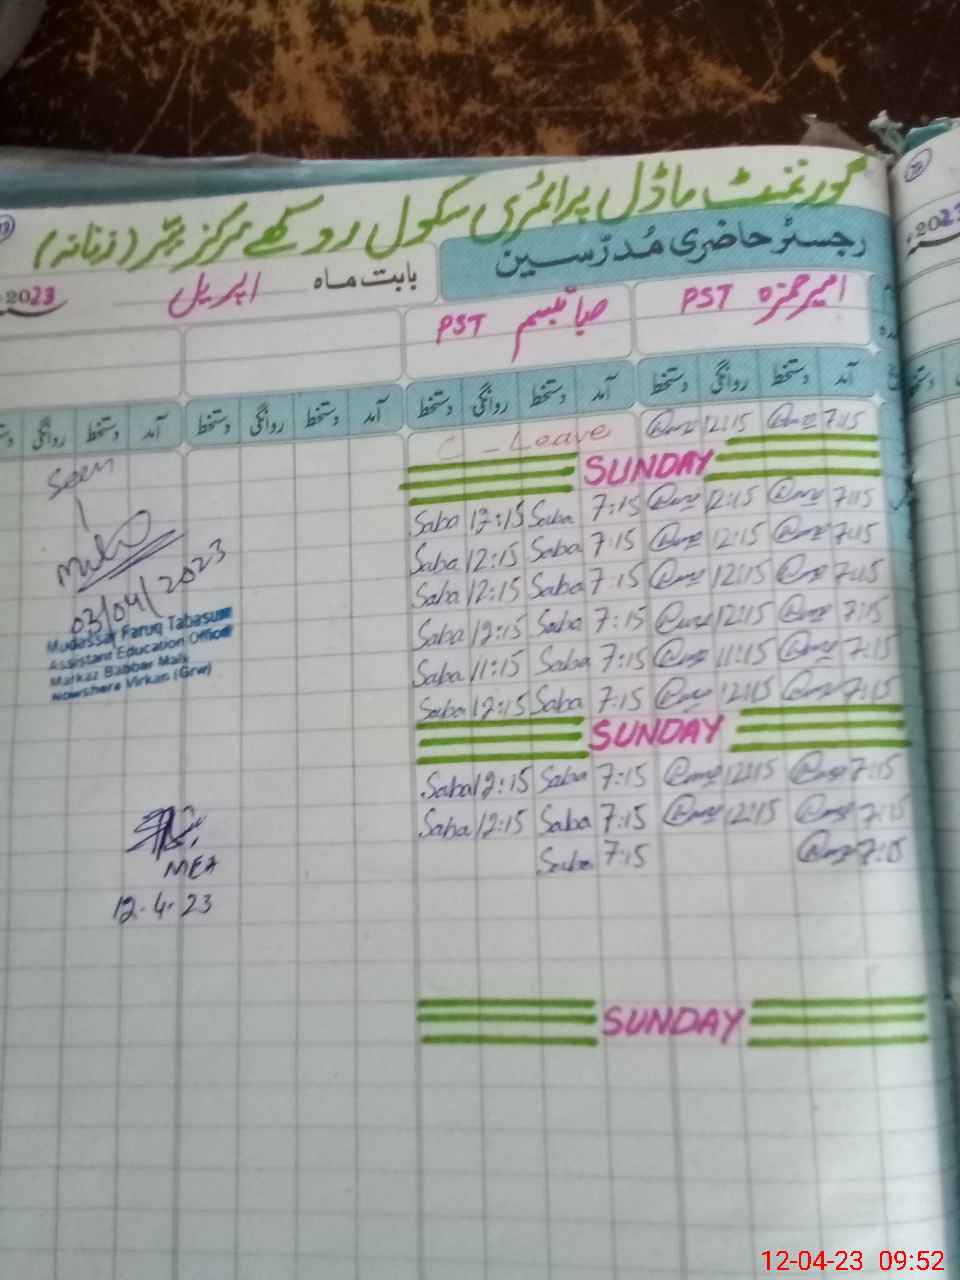 گورنمنٹ ماڈل پرائمری سکول روکھے مرکز ببّر (زنانہ)
رجسٹر حاضری مُدرّسین
بابت ماہ اپریل 2023
امیر حمزہ PST صبا تبسم PST
آمد دستخط روانگی دستخط آمد دستخط روانگی دستخط آمد دستخط روانگی دستخط آمد دستخط روانگی
C - Leave 12:15 7:15
SUNDAY
Saba 12:15 Saba 7:15 12:15 7:15
Saba 12:15 Saba 7:15 12:15 7:15
Saba 12:15 Saba 7:15 12:15 7:15
Saba 12:15 Saba 7:15 12:15 7:15
Saba 11:15 Saba 7:15 11:15 7:15
Saba 12:15 Saba 7:15 12:15 7:15
SUNDAY
Saba 12:15 Saba 7:15 12:15 7:15
Saba 12:15 Saba 7:15 12:15 7:15
Saba 7:15 7:15
SUNDAY
Seen
03/04/2023
Mudassar Faruq Tabasum
Assistant Education Officer
Markaz Babber Mali
Nowshera Virkan (Grw)
MEA
12-4-23
2023
12-04-23 09:52